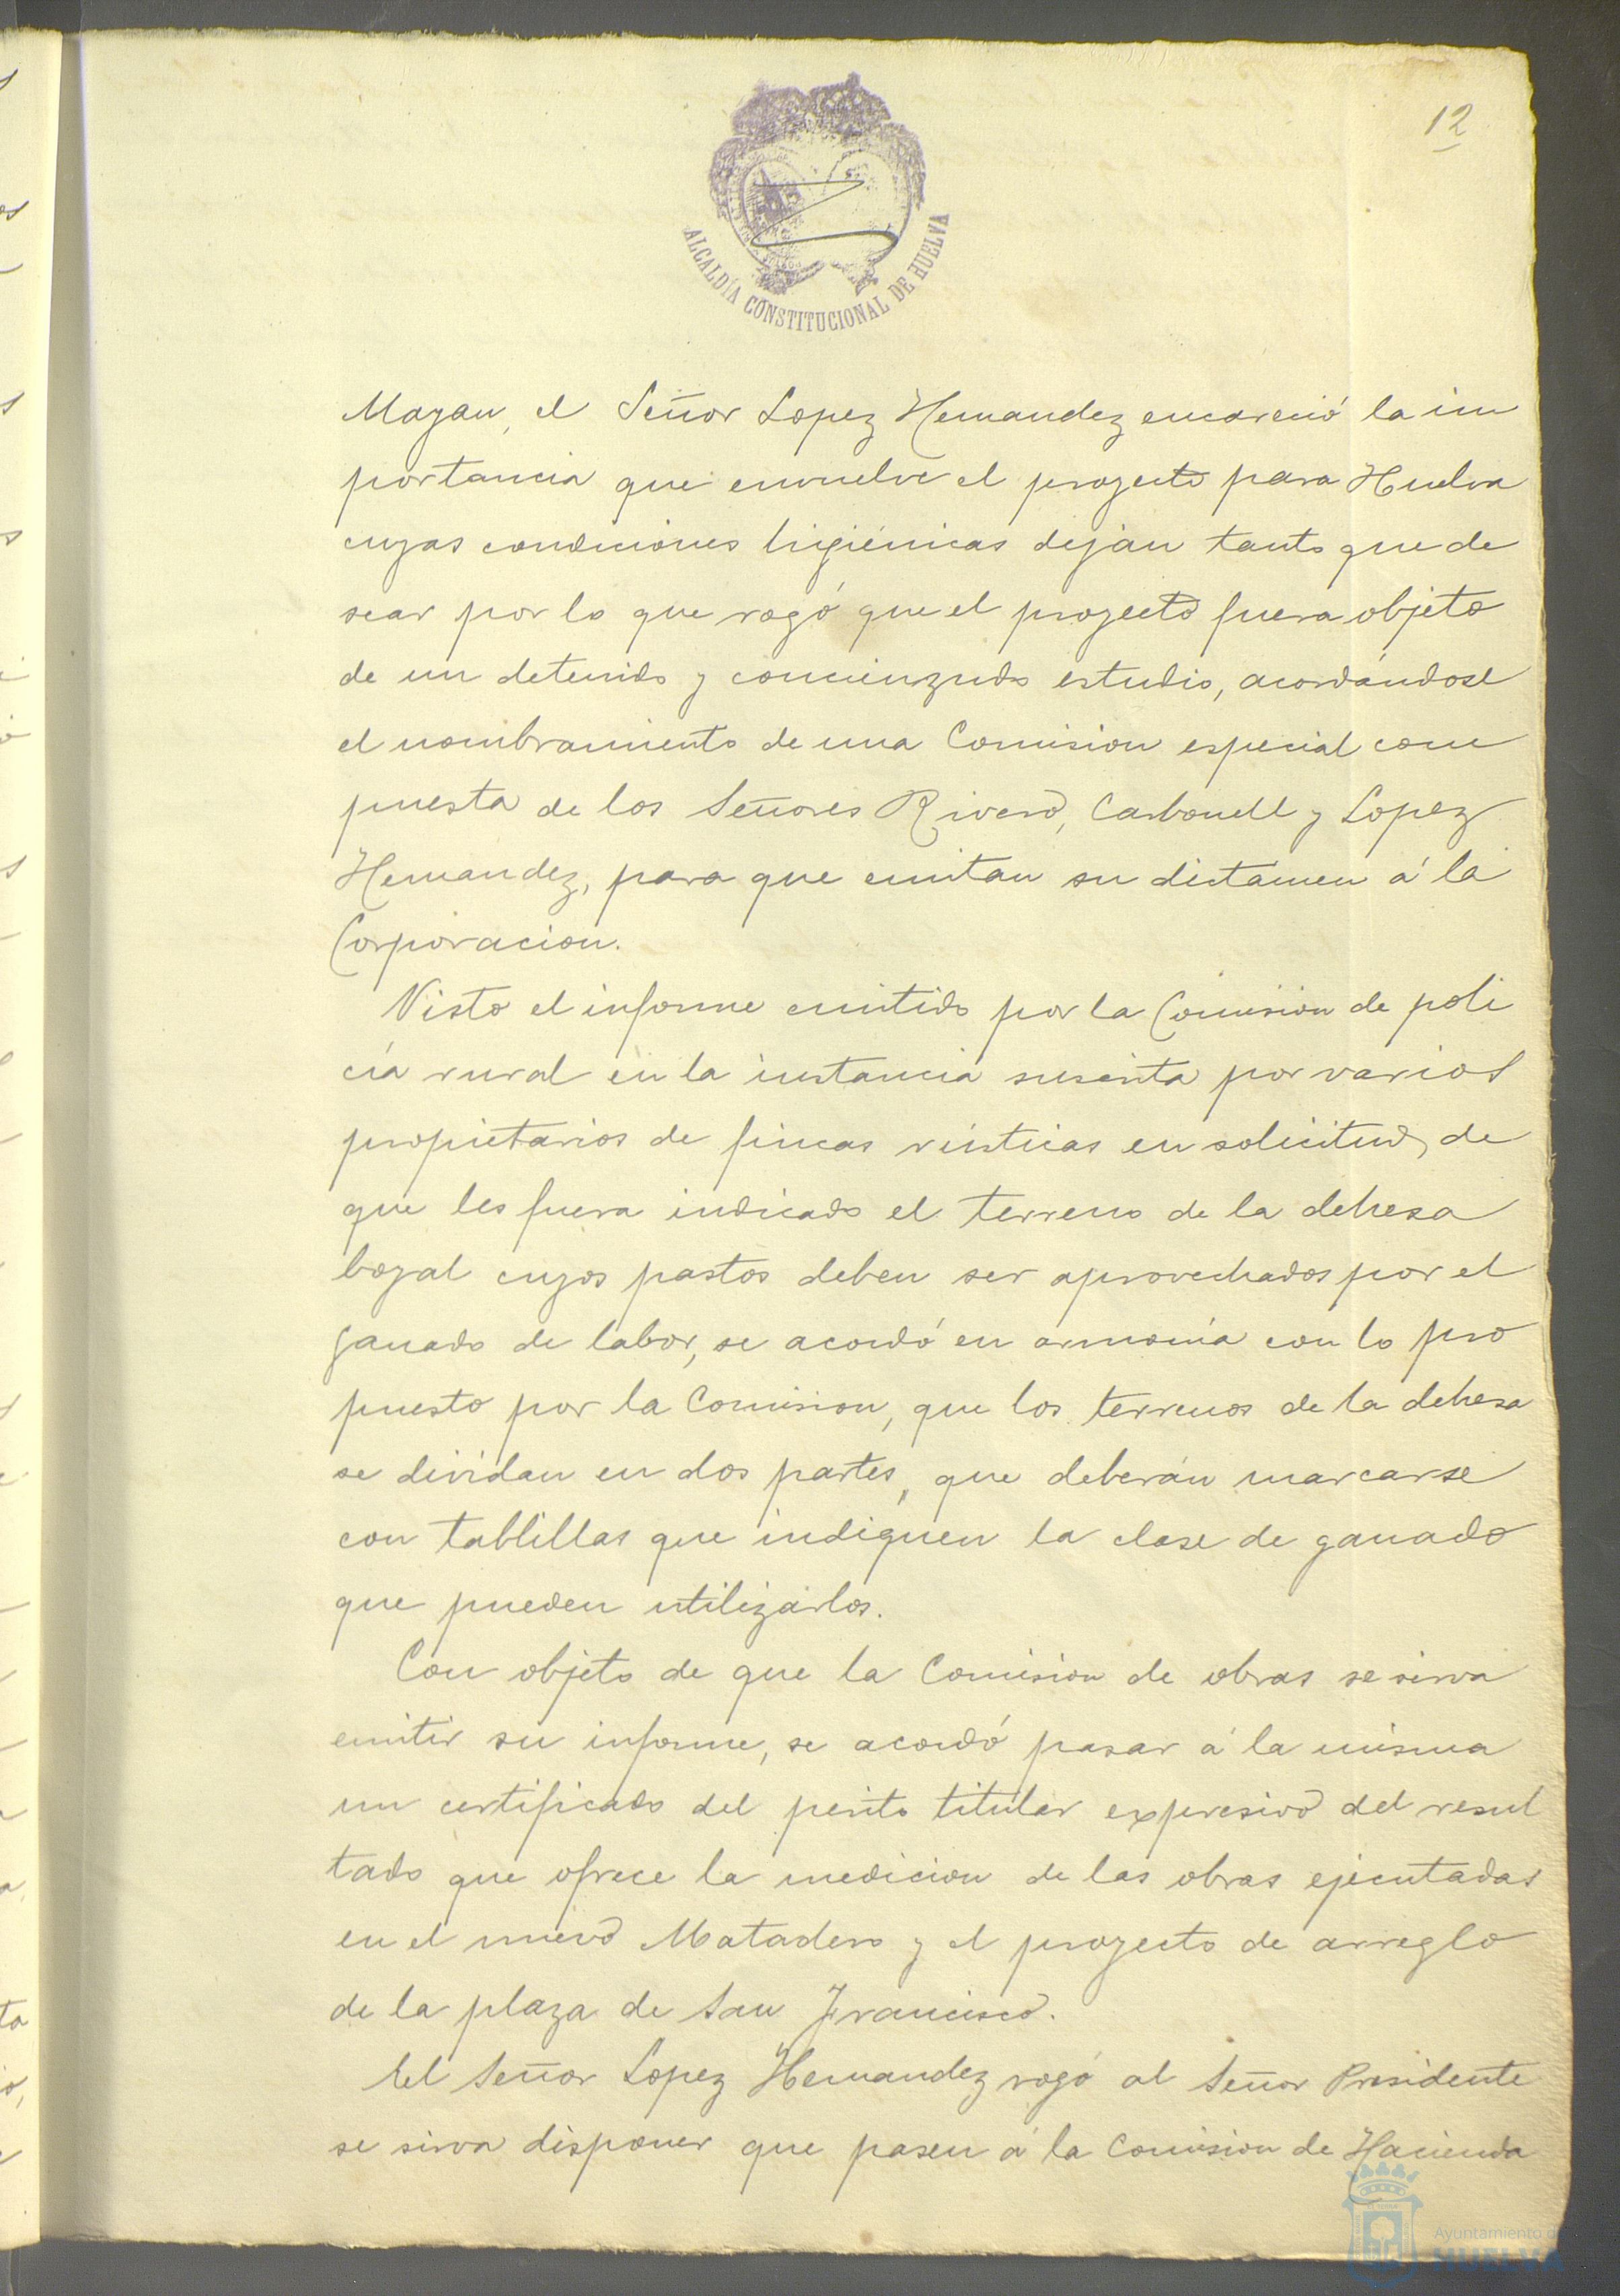 12
ALCALDÍA CONSTITUCIONAL DE HUELVA
Mayan, el Señor Lopez Hernandez encareció la im
portancia que envuelve el proyecto para Huelva
cuyas condiciones higiénicas dejan tanto que de
sear por lo que rogó que el proyecto fuera objeto
de un detenido y concienzudo estudio, acordándose
el nombramiento de una Comision especial com
puesta de los Señores Rivero, Carbonell y Lopez
Hernandez, para que emitan su dictamen á la
Corporacion.
Visto el informe emitido por la Comisión de poli
cía rural en la instancia suscrita por varios
propietarios de fincas rústicas en solicitud de
que les fuera indicado el terreno de la dehesa
boyal cuyos pastos deben ser aprovechados por el
ganado de labor, se acordó en armonía con lo pro
puesto por la Comision, que los terrenos de la dehesa
se dividan en dos partes, que deberán marcarse
con tablillas que indiquen la clase de ganado
que pueden utilizarlos.
Con objeto de que la Comision de obras se sirva
emitir su informe, se acordó pasar á la misma
un certificado del perito titular expresivo del resul
tado que ofrece la medicion de las obras ejecutadas
en el nuevo Matadero y el proyecto de arreglo
de la plaza de San Francisco.
El Señor Lopez Hernandez rogó al Señor Presidente
se sirva disponer que pasen á la Comision de Hacienda
Ayuntamiento de
HUELVA